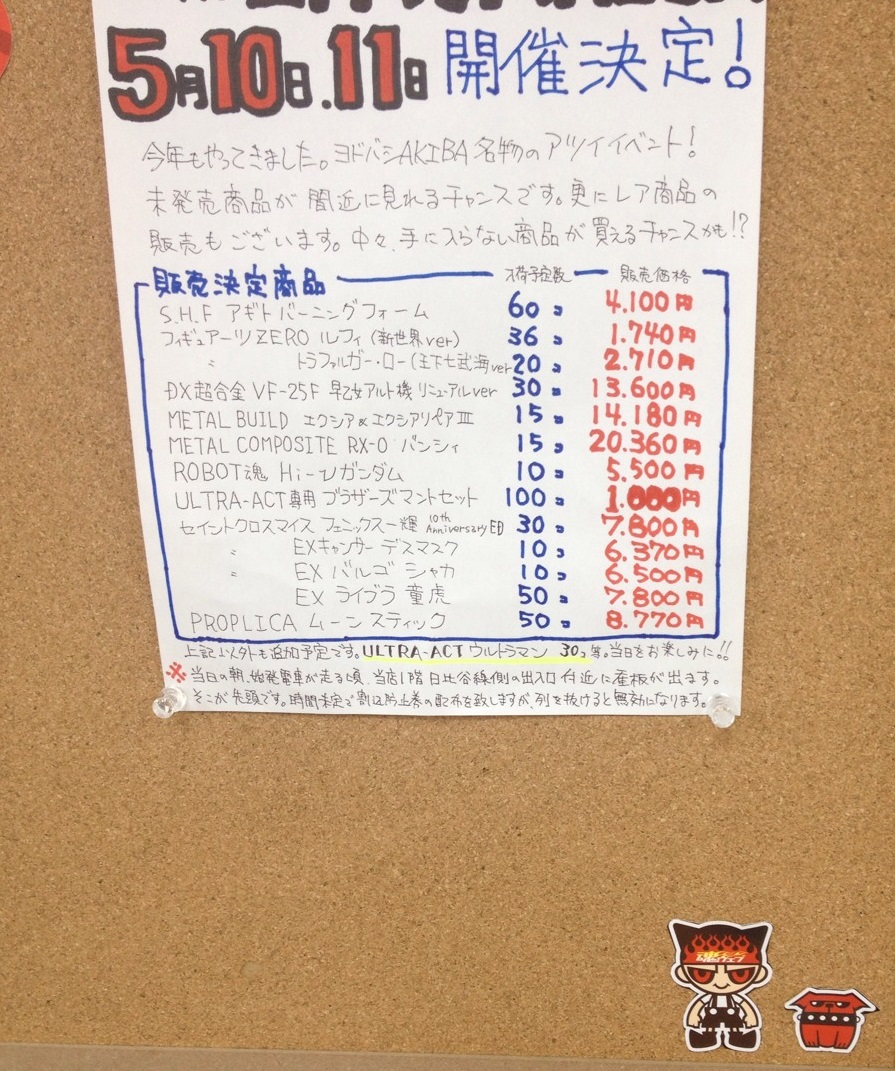 5月10日.11日 開催決定!
今年もやってきました。ヨドバシAKIBA名物のアツイイベント!
未発売商品が間近に見れるチャンスです。更にレア商品の
販売もございます。中々、手に入らない商品が買えるチャンスかも!?
販売決定商品 入荷予定数 販売価格
S.H.F アギト バーニングフォーム 60コ 4.100円
フィギュアーツZERO ルフィ(新世界ver) 36コ 1.740円
〃 トラファルガー・ロー(王下七武海ver 20コ 2.710円
DX超合金 VF-25F 早乙女アルト機 リニューアルver 30コ 13.600円
METAL BUILD エクシア&エクシアリペアⅢ 15コ 14.180円
METAL COMPOSITE RX-0 バンシィ 15コ 20.360円
ROBOT魂 Hi-νガンダム 10コ 5.500円
ULTRA-ACT専用 ブラザーズマントセット 100コ 1.000円
セイントクロスマイス フェニックス一輝 10th Anniversary ED 30コ 7.800円
〃 EXキャンサー デスマスク 10コ 6.370円
〃 EX バルゴ シャカ 10コ 6.500円
EX ライブラ 童虎 50コ 7.800円
PROPLICA ムーンスティック 50コ 8.770円
上記以外も追加予定です。ULTRA-ACT ウルトラマン 30コ等。当日をお楽しみに!!
※当日の朝、始発電車が走る頃、当店1階 日比谷線側の出入口付近に看板が出ます。
そこが先頭です。時間未定で割込防止券の配布を致しますが、列を抜けると無効になります。
魂ウェブ